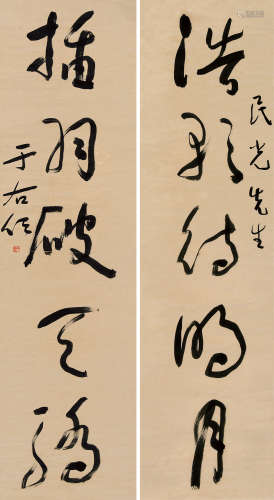 浩歌待明月
民光先生
插羽破天骄
于右任